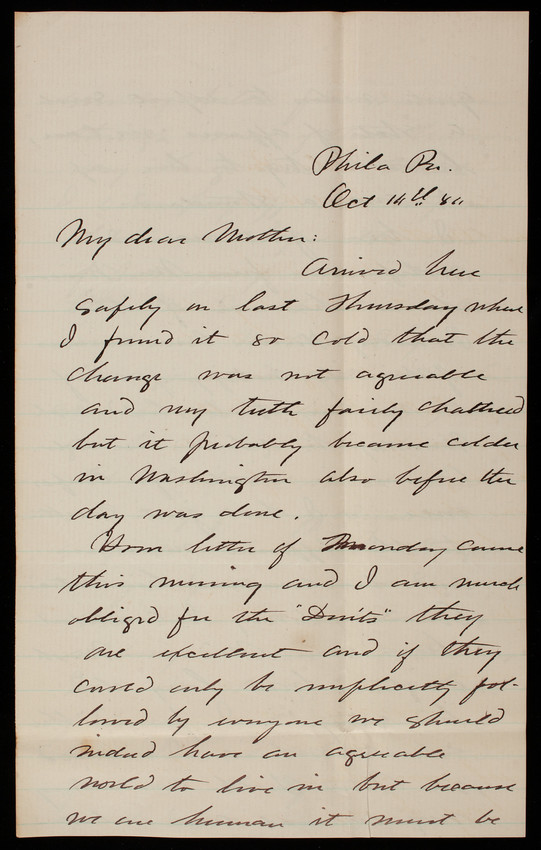 Phila Pa.
Oct 14th 80
My dear Mother:
Arrived here
safely on last Thursday where
I found it so cold that the
change was not agreeable
and my teeth fairly chattered
but it probably became colder
in Washington also before the
day was done.
Your letter of Monday came
this morning and I am much
obliged for the "Don'ts" they
are excellent and if they
could only be implicitly fol-
lowed by everyone we should
indeed have an agreeable
world to live in but because
we are human it must be